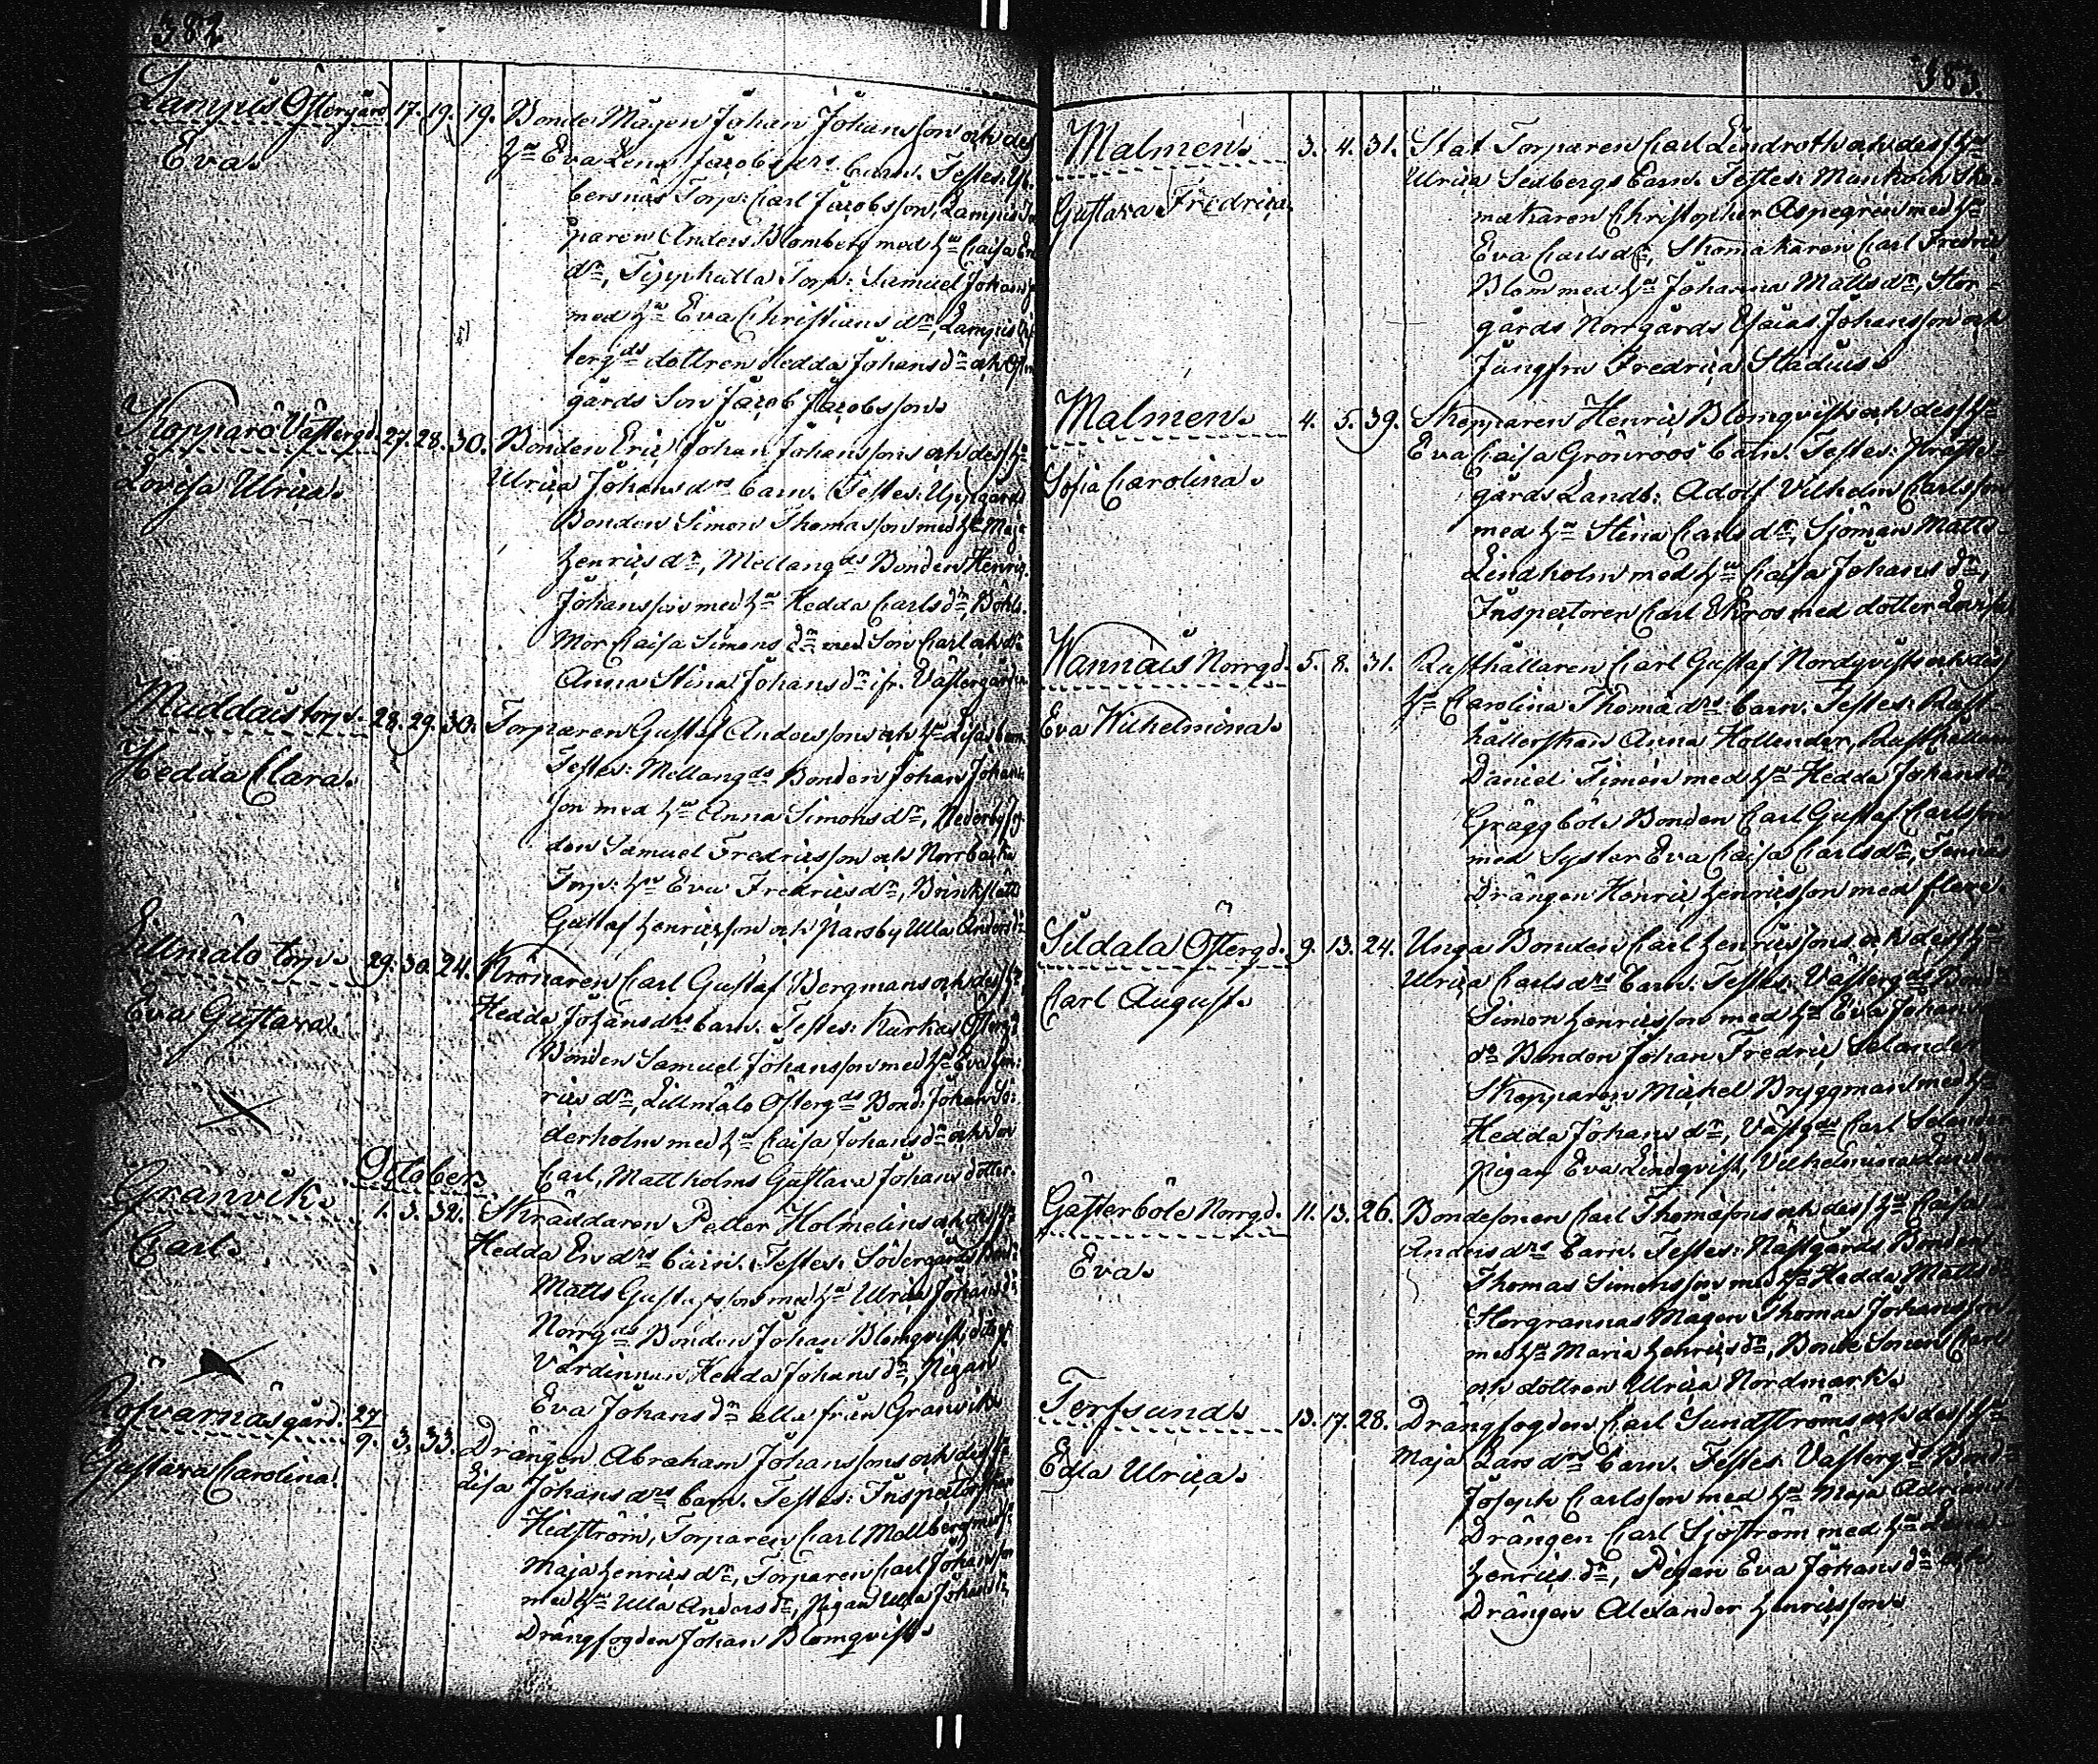 382
Lampis Östergård 17. 19. 19. Bonde Mågen Johan Johanssons och des
Eva. hu Eva Lena Jacobsdrs barn. Testes: Yt-
bersnäs Torp: Carl Jacobsson, Lampis To
paren Anders Blomberg med hu Caisa
dr, Tipphalla Torp: Samuel Johans
med hu Eva Christiansdr, Lampis
tergds dottren Hedda Johansdr och
gårds Son Jacob Jacobsson.
Kopparö Västergd. 27. 28. 30. Bonden Eric Johan Johanssons och des hu
Lovisa Ulrica. Ulrica Johansdrs barn. Testes: Uppgårds
Bonden Simon Thomasson med hu Maja
Henricsdr, Mellangds Bonden Henric
Johansson med hu Hedda Carlsdr, Böhle
Mor Caisa Simonsdr med Son Carl och dr
Anna Stina Johansdr ifr. Västergården.
Muddais torp. 28. 29. 30. Torparen Gustaf Anderssons och hu Lisas barn.
Hedda Clara. Testes: Mellangds Bonden Johan Johans
son med hu Anna Simonsdr, Nederby
den Samuel Fredricsson och Norrbacka
Torp: hu Eva Fredricsdr, Brinkslätts
Gustaf Henricsson och Parsby Ulla Andersdr
Lillmälö torp. 29. 30. 24. Kronaren Carl Gustaf Bergmans och des hu
Eva Gustava. Hedda Johansdrs barn. Testes: Kurkas Östergds
Bonden Samuel Johansson med hu Eva Hen
ricsdr, Lillmälö Östergds Bond: Johan Sö-
derholm med hu Caisa Johansdr och Son
Carl, Mattholms Gustava Johans dotter.
October
Granvik. 1. 3. 32. Skräddaren Petter Holmelins och des hu
Carl. Hedda Ersdrs barn. Testes: Södergårds Bond:
Matts Gustafsson med hu Ulrica Johansdr
Norrgds Bonden Johan Blomqvist, dito
Värdinnan Hedda Johansdr, Pigan
Eva Johansdr alla från Granvik
Rofvarnäs gård. 27
9. 3. 33. Drängen Abraham Johanssons och des hu
Gustava Carolina. Lisa Johansdrs barn. Testes: Inspectorskan
Hidström, Torparen Carl Mellberg med hu
Maja Henricsdr, Torparen Carl Johansson
med hu Ulla Andersdr, Pigan Ulla Johansdr
Drängfogden Johan Blomqvist.
383.
Malmen. 3. 4. 31. Stat Torparen Carl Lindroths och des hu
Gustava Fredrica. Ulrica Sedbergs barn. Testes: Munkvik Sko-
makaren Christopher Aspegren med hu
Eva Carlsdr, Skomakaren Carl Fredric
Blom med hu Johanna Mattsdr, Stor-
gårds Norrgårds Esaias Johansson och
Jungfru Fredrica Stadius.
Malmen. 4. 5. 39. Skepparen Henric Blomqvists och des hu
Sofia Carolina. Eva Caisa Grönroos barn. Testes: Präste-
gårds Landb: Adolf Vilhelm Carlsson
med hu Stina Carlsdr, Sjöman Matts
Lindholm med hu Caisa Johansdr,
Inspectoren Carl Ekroos med dotter Lovisa
Wannais Norrgd. 5. 8. 31. Rusthållaren Carl Gustaf Nordqvists och des
Eva Wilhelmina. hu Carolina Thomædrs barn. Testes: Rust-
hållerskan Anna Hollender, Rusthållaren
Daniel Simon med hu Hedda Johansdr
Gräggböle Bonden Carl Gustaf Carlsson
med Syster Eva Caisa Carlsdr, Tennäs
Drängen Henric Henricsson med flere.
Sildala Östergd. 9. 13. 24. Unga Bonden Carl Henricssons och des hu
Carl August. Ulrica Carlsdrs barn. Testes: Västergds Bond
Simon Henricsson med hu Eva Johans
do Bonden Johan Fredric Selander
Skepparen Michel Bryggman med hu
Hedda Johansdr, Västgds Carl Selander
Pigan Eva Lindqvist, Vilhelmina
Gästerböle Norrgd. 11. 13. 26. Bondesonen Carl Thomæsons och des hu Caisa
Eva. Andersdrs barn. Testes: Nästgårds Bonden
Thomas Simonsson med hu Hedda Mattsdr
Horgrannas Mågen Thomas Johansson
med hu Maria Henricsdr, Bonde Sonen Carl
och dottren Ulrica Nordmark.
Terfsund. 13. 17. 28. Drängfogden Carl Sundströms och des hu
Edla Ulrica. Maja Larsdrs barn. Testes: Västergds Bond
Joseph Carlsson med hu Maja Adrians
Drängen Carl Sjöström med hu Lena
Henricsdr, Pigan Eva Johansdr och
Drängen Alexander Henricsson.